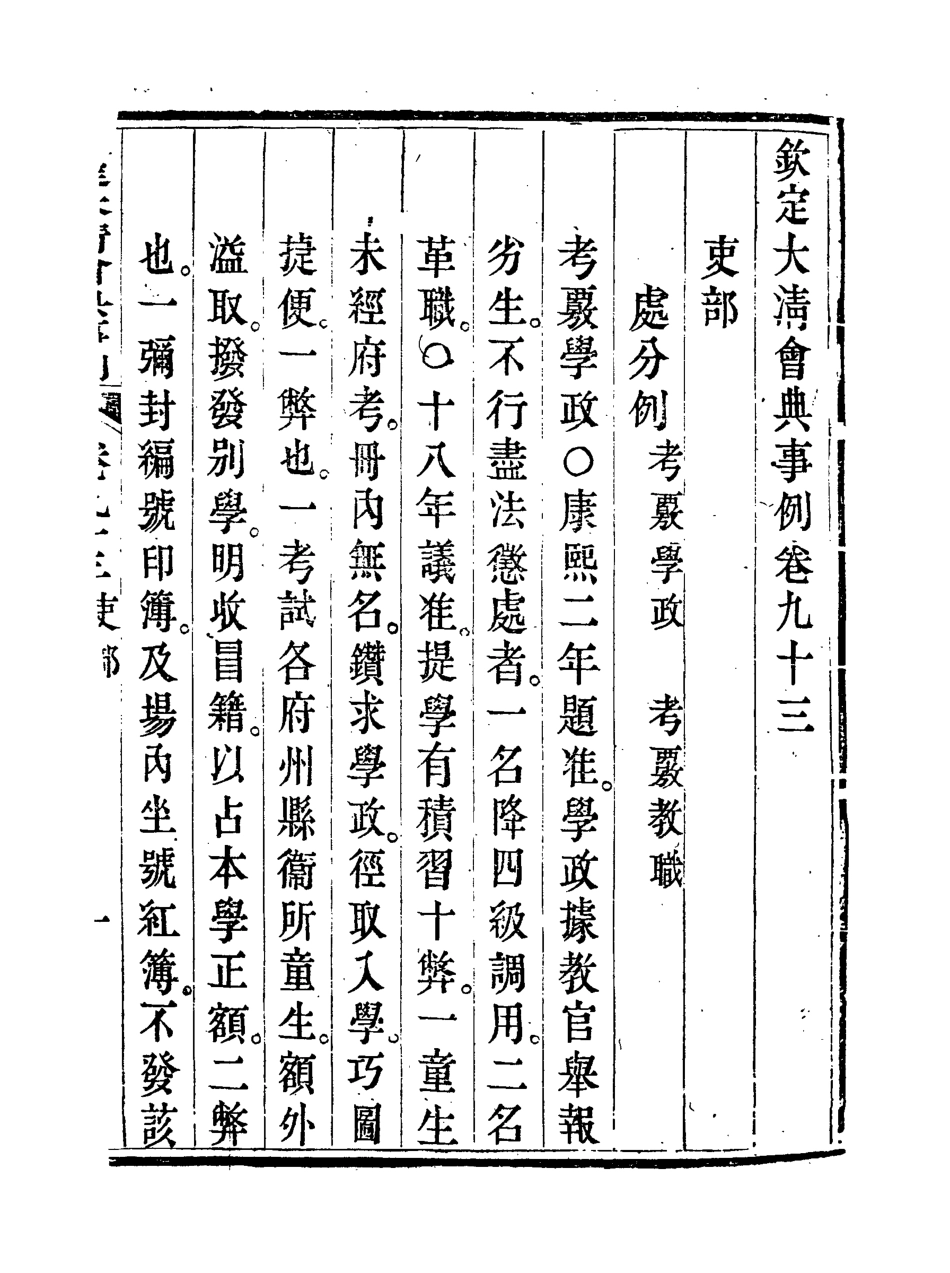 欽定大淸會典事例卷九十三
吏部
處分例 考覈學政 考覈教職
考覈學政〇康熙二年題准。學政據教官舉報
劣生。不行盡法懲處者。一名降四級調用。二名
革職。〇十八年議准。提學有積習十弊。一童生
未經府考。冊內無名。鑽求學政。徑取入學。巧圖
捷便。一弊也。一考試各府州縣衞所童生。額外
溢取。撥發別學。明收冒籍。以占本學正額。二弊
也。一彌封編號印簿。及場內坐號紅簿。不發該
大淸會典事例 卷九十三 吏部 一